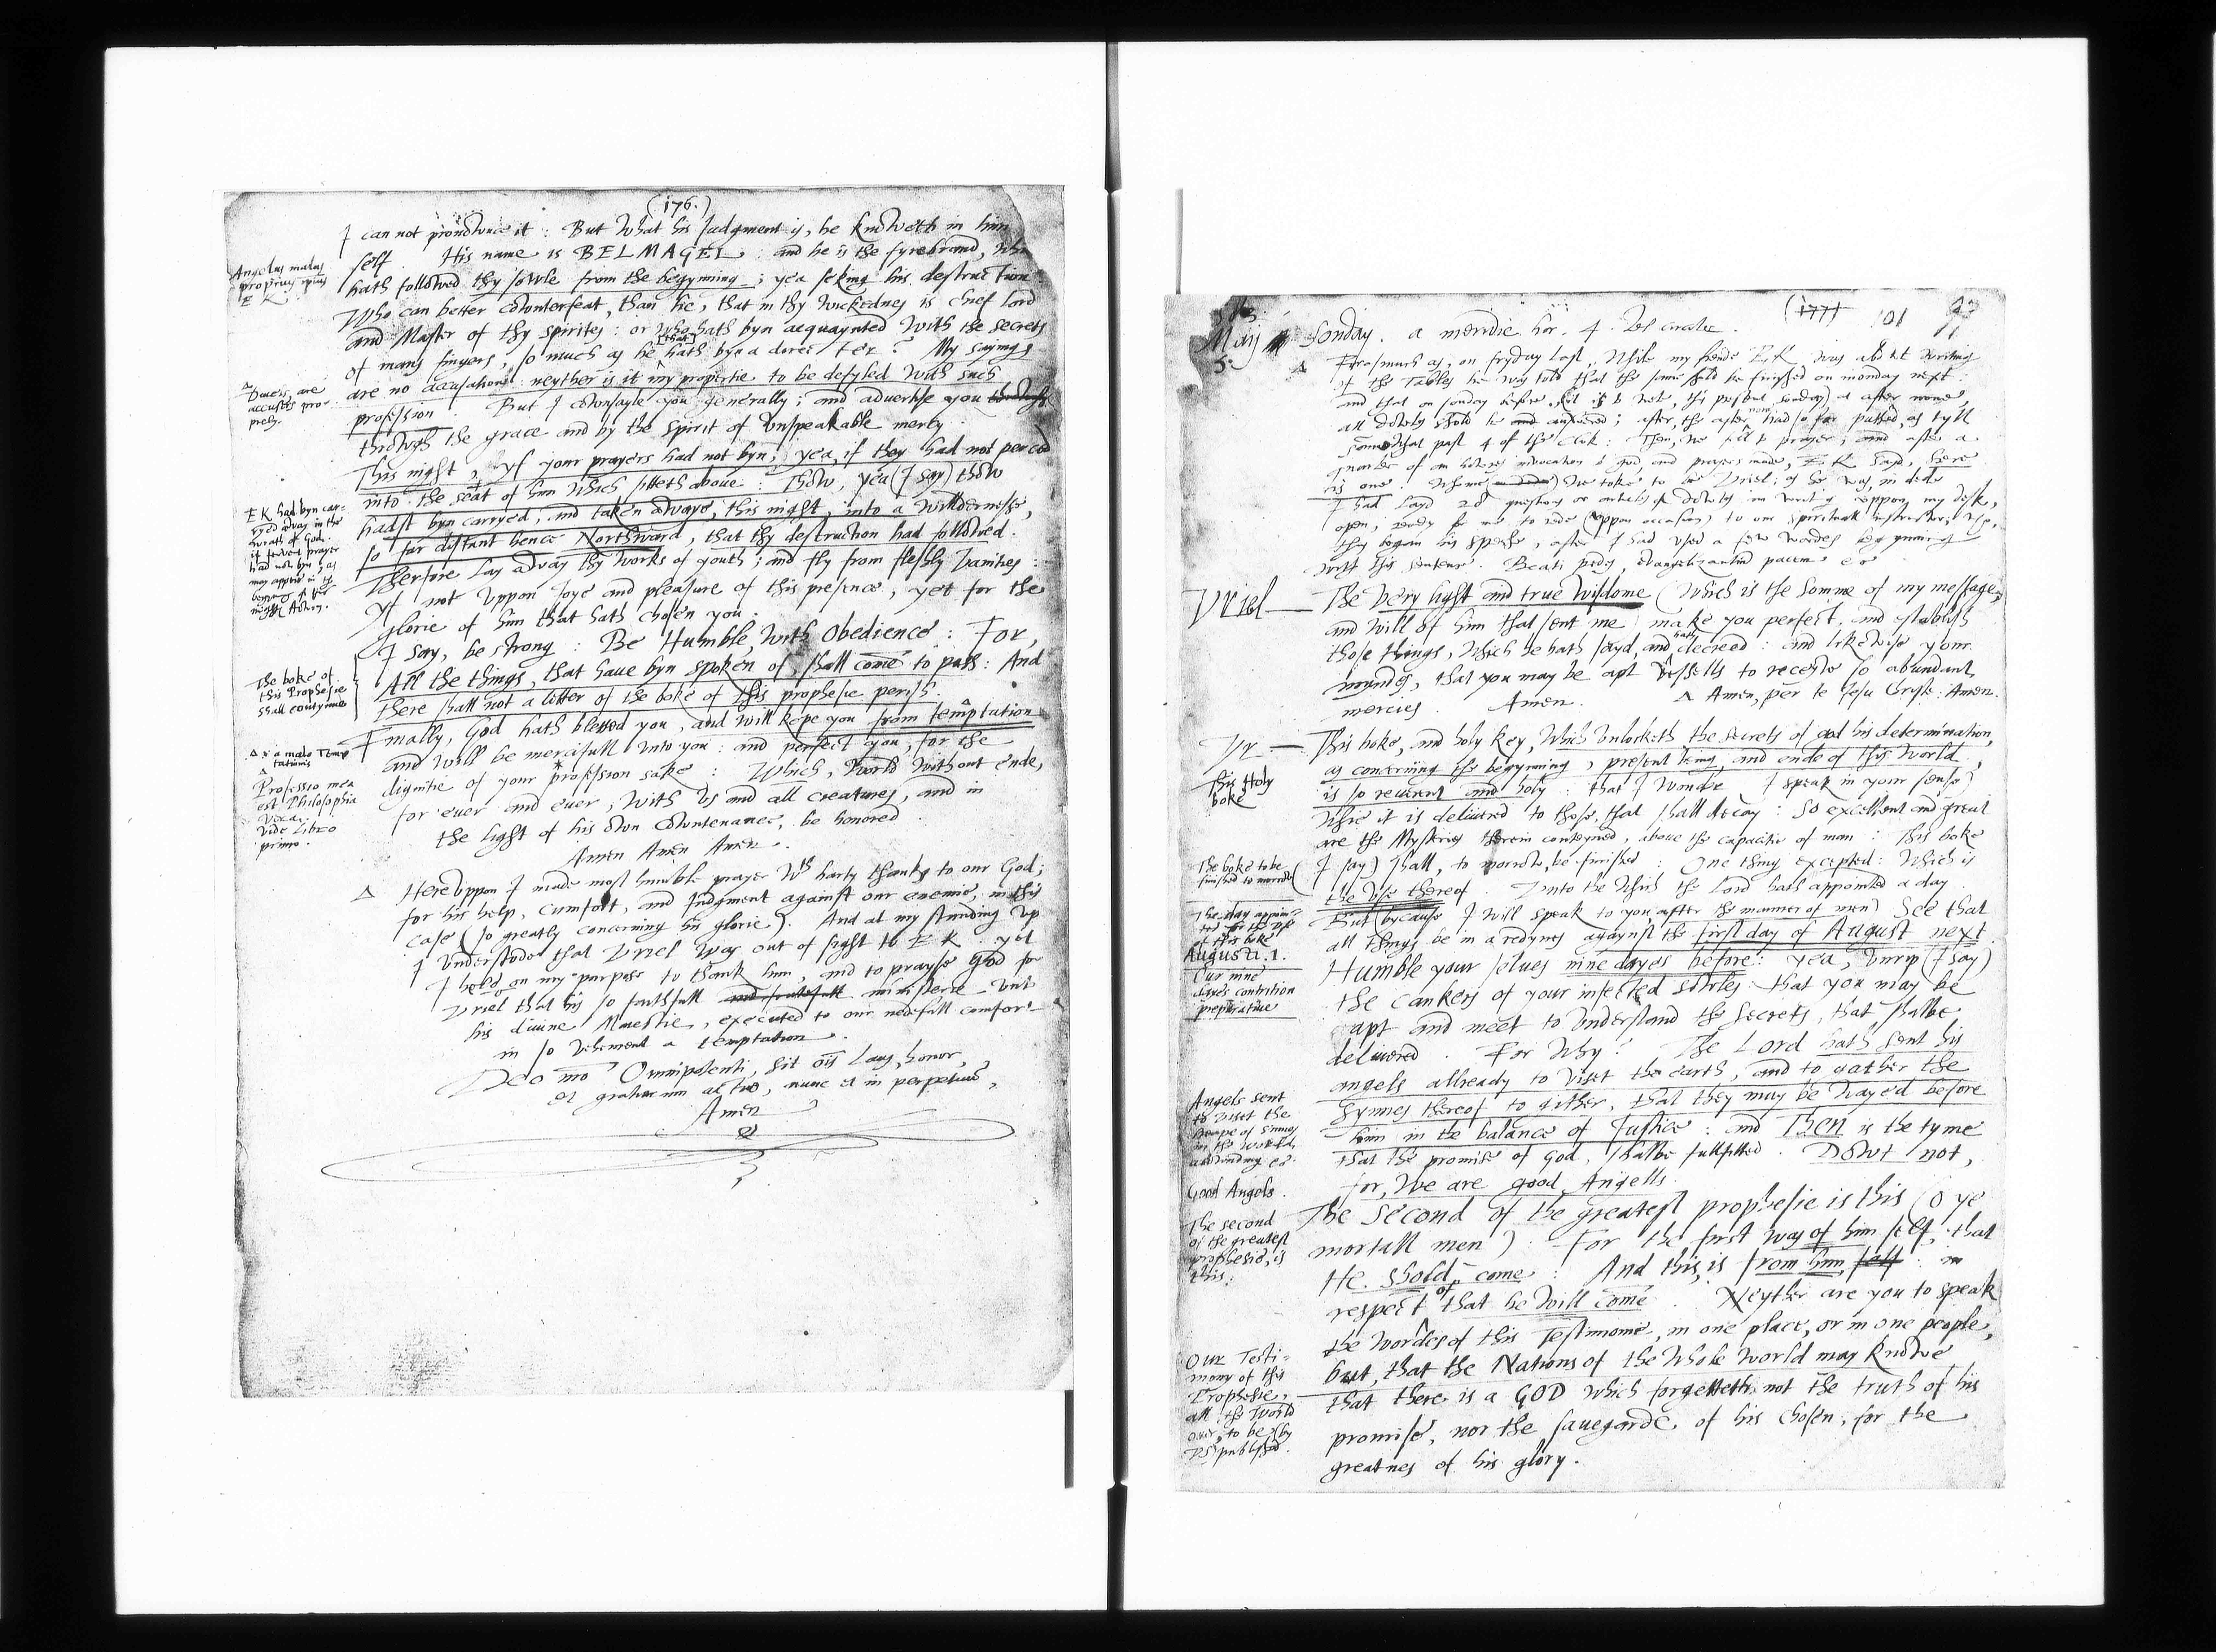 (176.)
I can not pronownce it : But what his Judgment is, he knoweth in him
self. His name is BELMAGEL : and he is the fyrebrand, who
hath followed thy sowle from the begynning ; yea seking his destruction.
Who can better cownterfeat, than he, that in thy wickednes is chief lord
and Master of thy spirites : or who hath byn acquaynted with the secrets
of mans fingers, so much as he [that] hath byn a directer ? My sayings
are no accusations : neyther is it my propertie to be defyled with such
profession. But I cownsayle you generally ; and advertise you
throwgh the grace and by the Spirit of unspeakable mercy.
This night, yf your prayers had not byn ; yea, if they had not perced
into the seat of him which sitteth above : Thow, yea (I say) thow
hadst byn carryed, and taken awaye, this night, into a willdernesse,
so far distant hence Northward, that thy destruction had followed.
Therfore lay away thy works of youth ; and fly from fleshly vanities :
Yf not uppon Joye and pleasure of this presence, yet for the
glorie of him that hath chosen you.
I say, be strong : Be Humble, with Obedience : For,
All the things, that have byn spoken of, shall come to pass : And
there shall not a letter of the boke of this prophesie perish.
Finally, God hath blessed you, and will kepe you from temptation
and will be mercifull unto you : and perfect you, for the
dignitie of your profession sake : Which, World without ende,
for ever and ever, with us and all creatures, and in
the light of his own Cowntenance, be honored.
Amen Amen Amen.
Δ Here uppon I made most humble prayer Wth harty thanks to our God ;
for his help, cumfort, and Judgment against our enemie, in this
case (so greatly concerning his glorie). And at my standing up
I understode that Uriel was out of sight to E K. yet
I held on my purpose to thank him, and to prayse God for
Uriel that his so faithfull ministerie unto
his divine Majestie, executed to our nedefull comfort
in so vehement a temptation.
Deo nro Omnipotenti, sit ois Laus, honor,
et gratiarum actio, nunc et in perpetuum,
Amen
Angelus malus
proprius ipsius
E K
Divers, are
accusers pro-
prely.
E K had byn car-
ryed away in the
wrath of God,
if fervent prayer
had not byn ; as
may appere in the
begynning of this
nights Action.
The boke of
this Prophesie
shall contynue
Δ × a malo Temp
tationis
Δ
Professio mea
est Philosophia
Vera.
Vide Libro
primo.
(177) 101
Maij 5. Sonday. a meridie hor. 4. vel circiter.
Δ Forasmuch as, on fryday last, While my frende E K was abowt writing
of the Tables he was told that the same shold be finished on monday next :
and that on sonday before (but is to wete, this present sonday) at after none,
all dowtes shold be answered ; after, the after none had so far passed, as tyll
somwhat past 4 of the clok : Then, we fell to prayer, and after a
quarter of an howres invocation to god, and prayers made, E K sayd, here
is one. Whome we toke to be Uriel ; as he was, in dede
I had layd 28 questions or articles of dowtes in writing uppon my desk,
open, redy for me to rede (uppon occasion) to our spirituall Instructor, who,
thus began his speche, after I had used a few wordes begynning
with this sentence. Beati pedes, evangelizantium pacem &c
Uriel — The very light and true wisdome (Which is the Somme of my message,
and will of him that sent me) make you perfect, and establish
those things, which he hath sayd, and hath decreed : and likewise your
myndes, that you may be apt vessells to receyve so abundant
mercies. Amen. Δ Amen, per te Jesu Christe : Amen.
Ur — This boke, and holy key, which unlocketh the secrets of god his determination,
as concerning the begynning, present being, and ende of this World,
is so reverent and holy : that I wonder (I speak in your sense)
Whie it is delivered to those, that shall decay : So excellent and great
are the Mysteries therein conteyned, above the capacitie of man : This boke
(I say) shall, to morrow, be finished : One thing excepted : Which is
the use thereof. Unto the which the Lord hath appointed a day
But (bycause I will speak to you, after the manner of men) See that
all things be in a redynes agaynst the first day of August next.
Humble your selves nine dayes before : yea, unrip (I say)
the cankers of your infected sowles that you may be
apt and meet to understand the Secrets, that shalbe
delivered. For Why? The Lord hath sent his
angels allready to visit the earth, and to gather the
synnes thereof to gither, that they may be wayed before
him in the balance of Justice : and Then is the tyme
that the promise of God, shalbe fullfilled. Dowt not,
for, We are good Angells.
The second of the greatest prophesie is this (O ye
mortall men) For the first was of him self, that
He shold come : And this, is from him self in
respect of that he will come. Neyther are you to speak
the wordes of this Testimonie, in one place, or in one people,
but, that the Nations of the whole World may knowe
that there is a GOD which forgetteth not the truth of his
promise, nor the savegarde of his chosen, for the
greatnes of his glory.
This Holy
boke
The boke to be
finished to morrow
The day appoin-
ted for the use
of this boke
Augusti. 1.
Our nine
dayes contrition
preparative
Angels sent
to visit the
heape of sinnes
in the World,
abownding &c.
Good Angels.
The second
of the greatest
prophesie, is
this.
Our Testi-
mony of this
Prophesie,
all the World
over, to be by
us published.